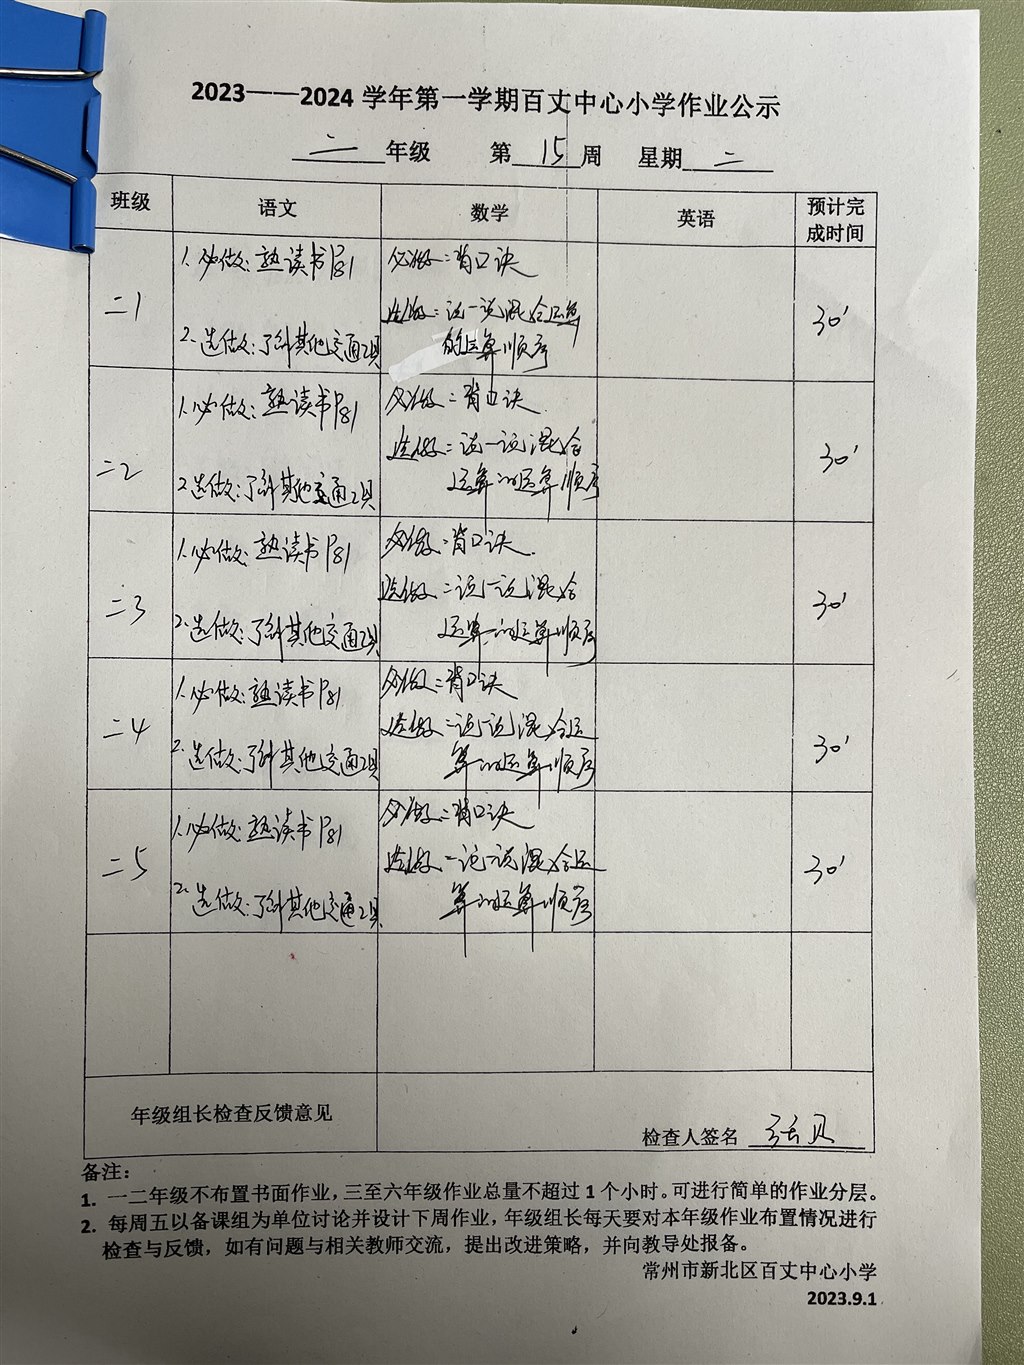 2023——2024 学年第一学期百丈中心小学作业公示
二 年级 第 15 周 星期 二
班级 语文 数学 英语 预计完成时间
二1
1. 必做：熟读书P81
2. 选做：了解其他交通工具
必做：背口诀
选做：说一说混合运算
的运算顺序
30'
二2
1. 必做：熟读书P81
2. 选做：了解其他交通工具
必做：背口诀.
选做：说一说混合
运算的运算顺序
30'
二3
1. 必做：熟读书P81
2. 选做：了解其他交通工具
必做：背口诀.
选做：说一说混合
运算的运算顺序
30'
二4
1. 必做：熟读书P81
2. 选做：了解其他交通工具
必做：背口诀
选做：说一说混合运
算的运算顺序
30'
二5
1. 必做：熟读书P81
2. 选做：了解其他交通工具
必做：背口诀
选做：说一说混合运
算的运算顺序
30'
年级组长检查反馈意见
检查人签名 张贝
备注：
1. 一二年级不布置书面作业，三至六年级作业总量不超过 1 个小时。可进行简单的作业分层。
2. 每周五以备课组为单位讨论并设计下周作业，年级组长每天要对本年级作业布置情况进行
检查与反馈，如有问题与相关教师交流，提出改进策略，并向教导处报备。
常州市新北区百丈中心小学
2023.9.1